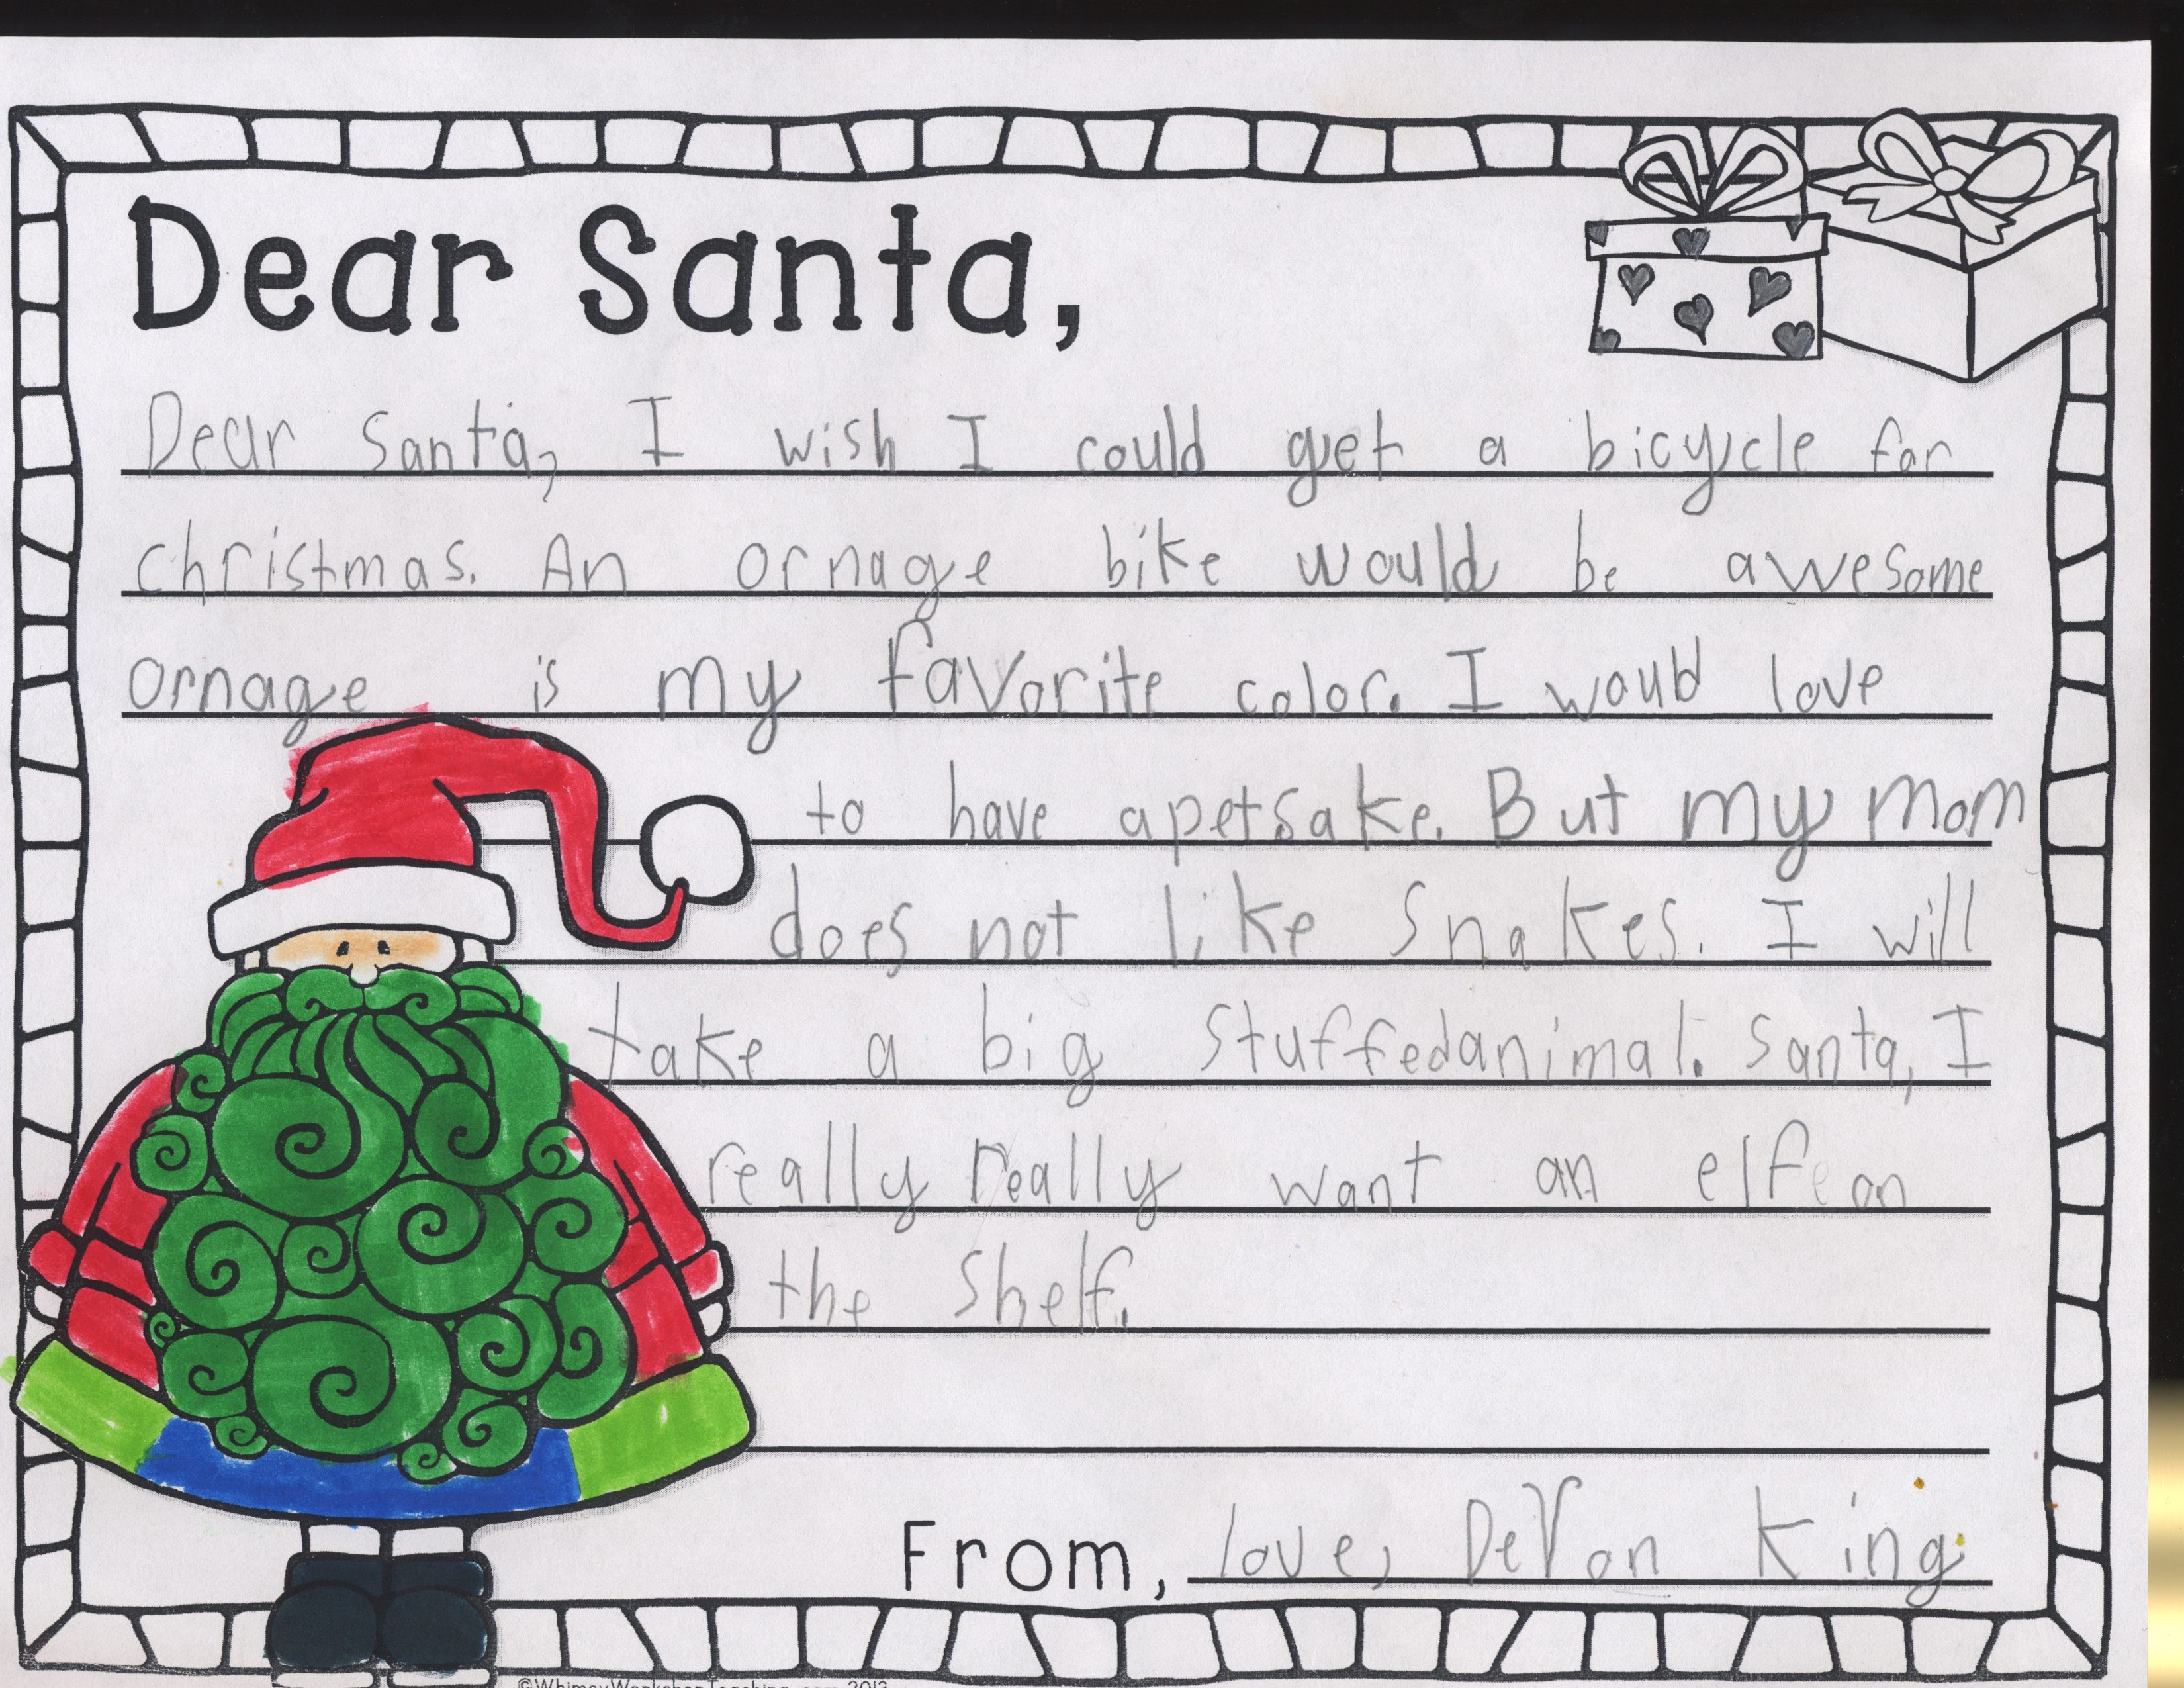 Dear Santa,
Dear Santa, I wish I could get a bicycle for
christmas. An ornage bike would be awesome
ornage is my favorite color. I woubd love
to have apetsake. But my mom
does not like snakes. I will
take a big stuffedanimal. Santa, I
really really want an elf on
the shelf.
From, love, DeVon King
©WhimsyWorkshopTeaching.com 2013